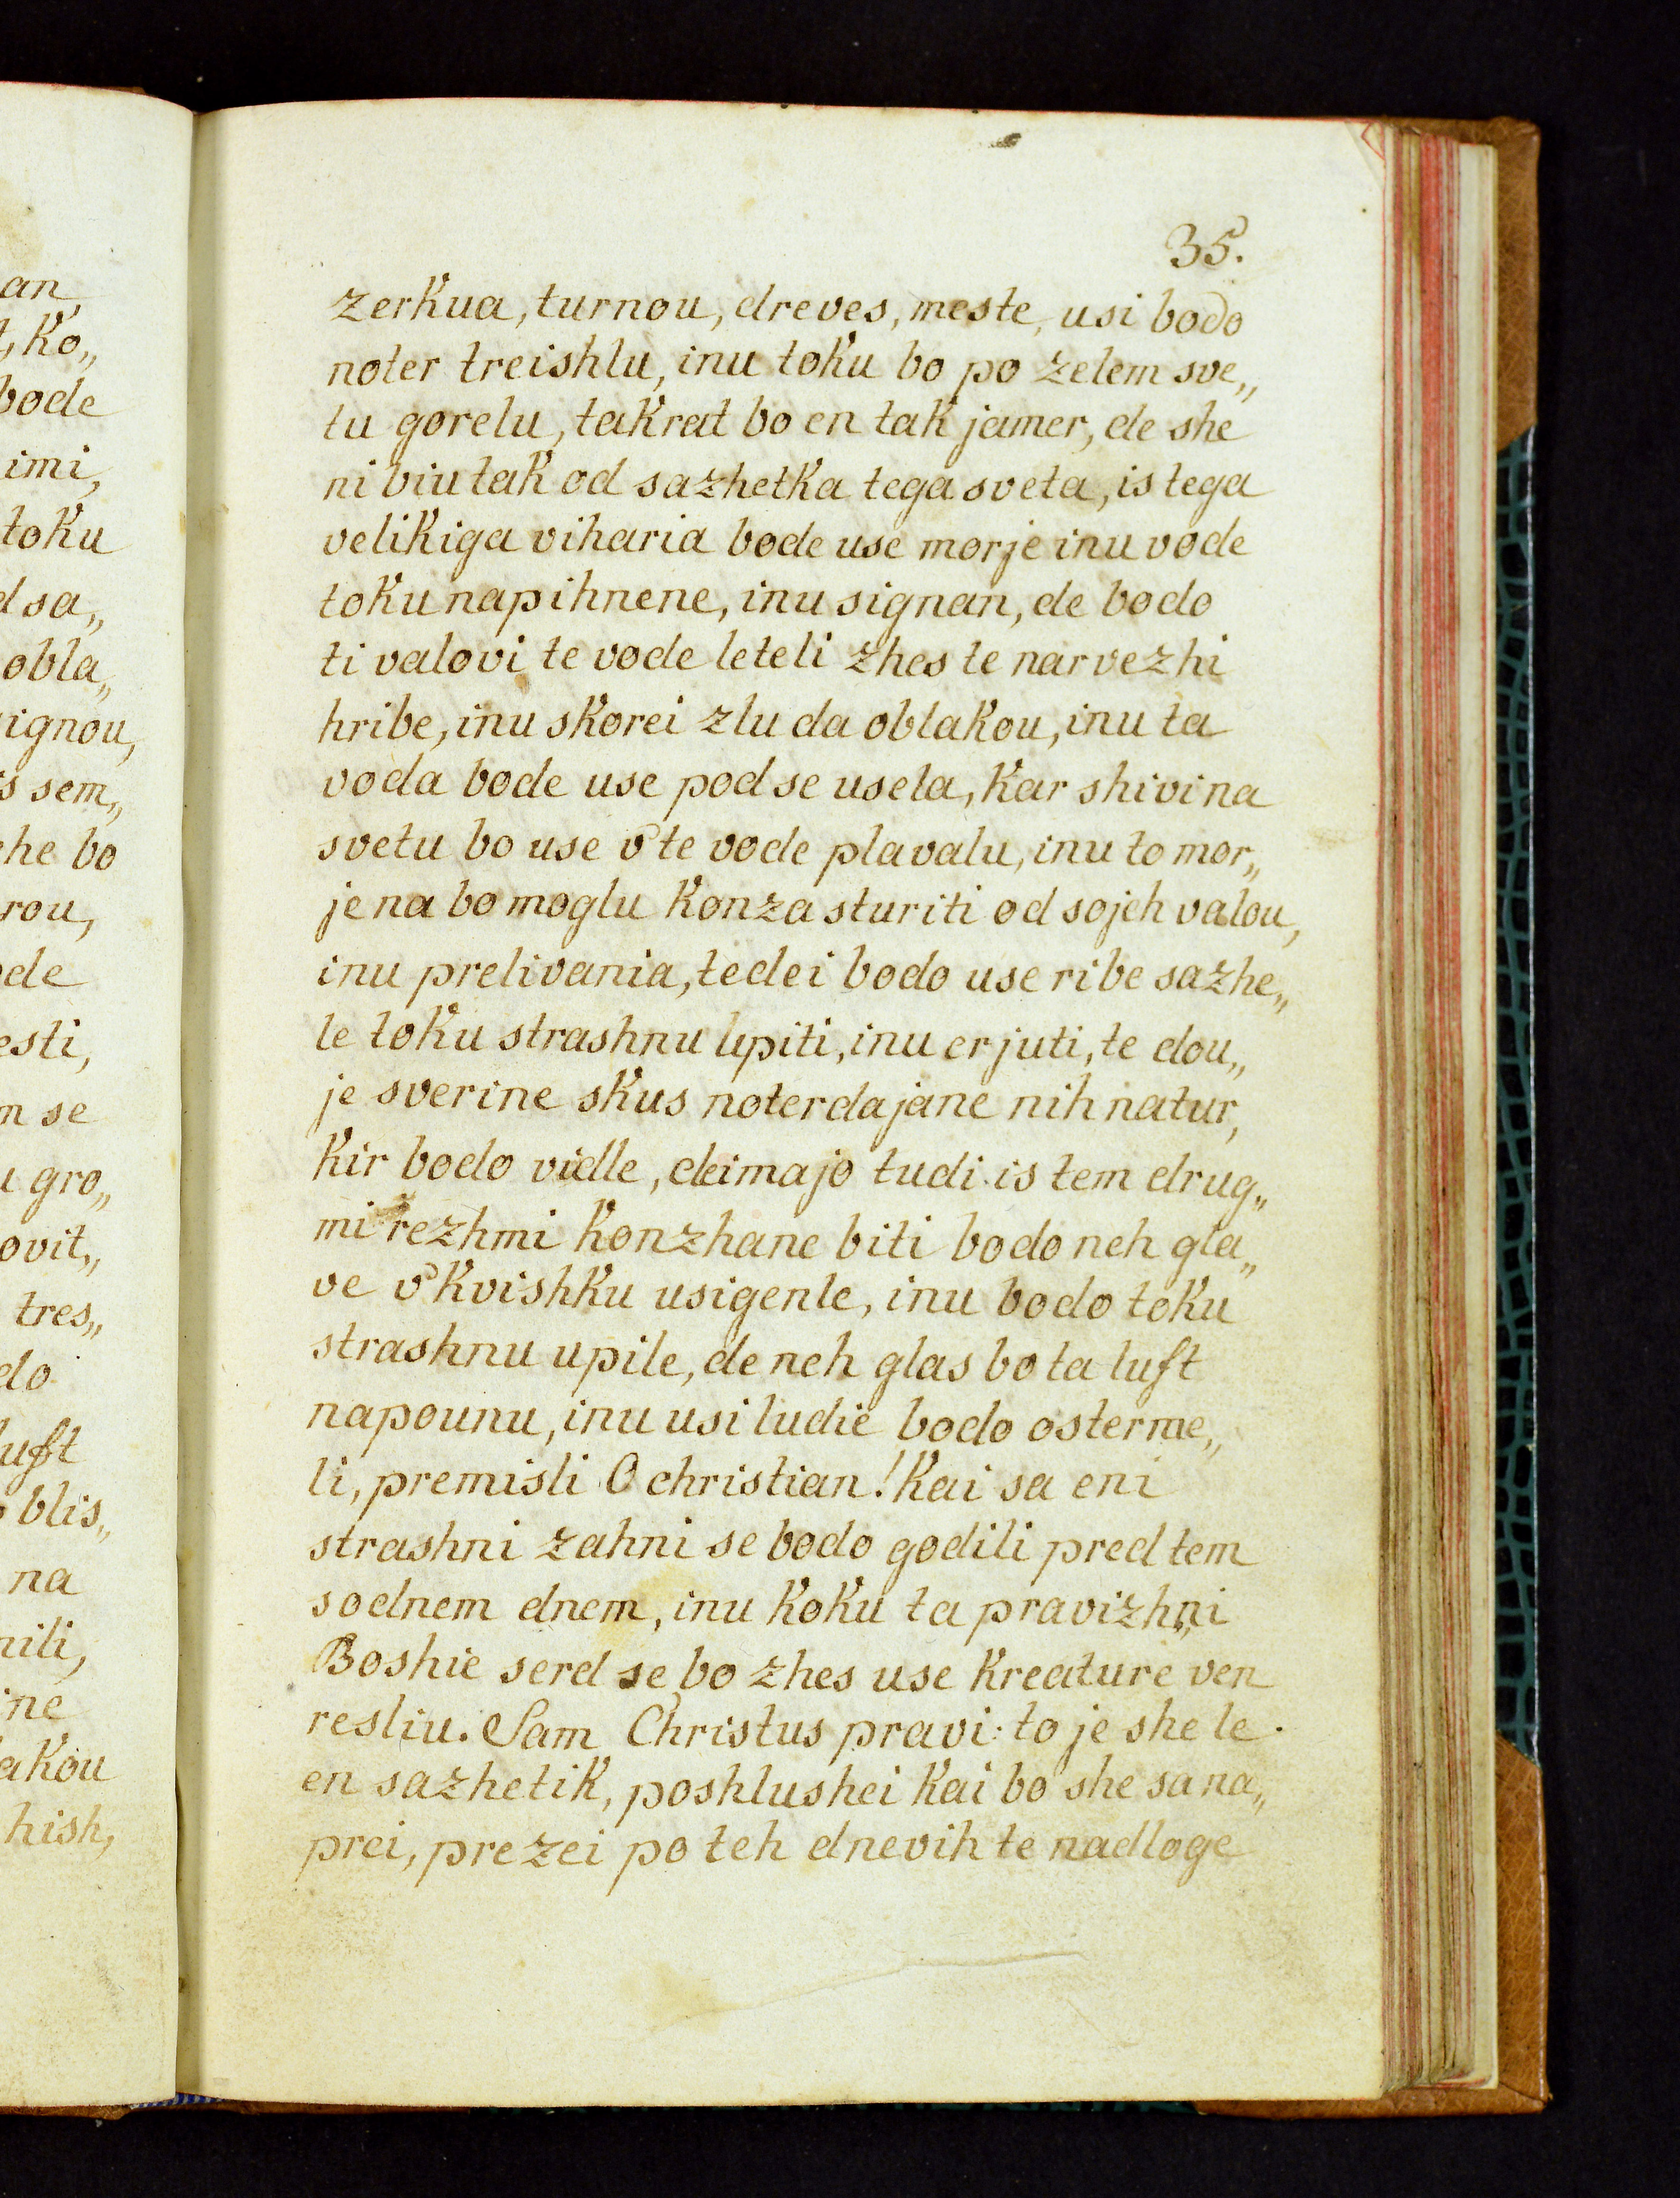 an,
t, ko„
bode
imi,
toku
d sa„
obla„
signou,
is sem„
she bo
rou,
ode
esti,
m se
u gro„
ovit„
tres„
do
luft
blis„
na
nili,
ine
akou
hish,
35.
zerkua, turnou, dreves, meste, usi bodo
noter treishlu, inu toku bo po zelem sve„
tu gorelu, takrat bo en tak jamer, de she
ni biu tak od sazhetka tega sveta, is tega
velikiga viharia bode use morje inu vode
toku napihnene, inu signan, de bodo
ti valovi te vode leteli zhes te narvezhi
hribe, inu skorei zlu da oblakou, inu ta
voda bode use pod se usela, kar shivi na
svetu bo use v' te vode plavalu, inu to mor„
je na bo moglu konza sturiti od sojeh valou,
inu prelivania, tedei bodo use ribe sazhe„
le toku strashnu upiti, inu erjuti, te dou„
je sverine skus noterdajane nih natur,
kir bodo vidle, deimajo tudi is tem drug„
mi rezhmi konzhane biti bodo neh gla„
ve v' kvishku usigenle, inu bodo toku
strashnu upile, de neh glas bo ta luft
napounu, inu usi ludie bodo osterme„
li, premisli O christian! kai sa eni
strashni zahni se bodo godili pred tem
sodnem dnem, inu koku ta pravizhni
Boshie serd se bo zhes use kreature ven
resliu. Sam Christus pravi: to je she le
en sazhetik, poshlushei kai bo she sa na„
prei, prezei po teh dnevih te nadloge